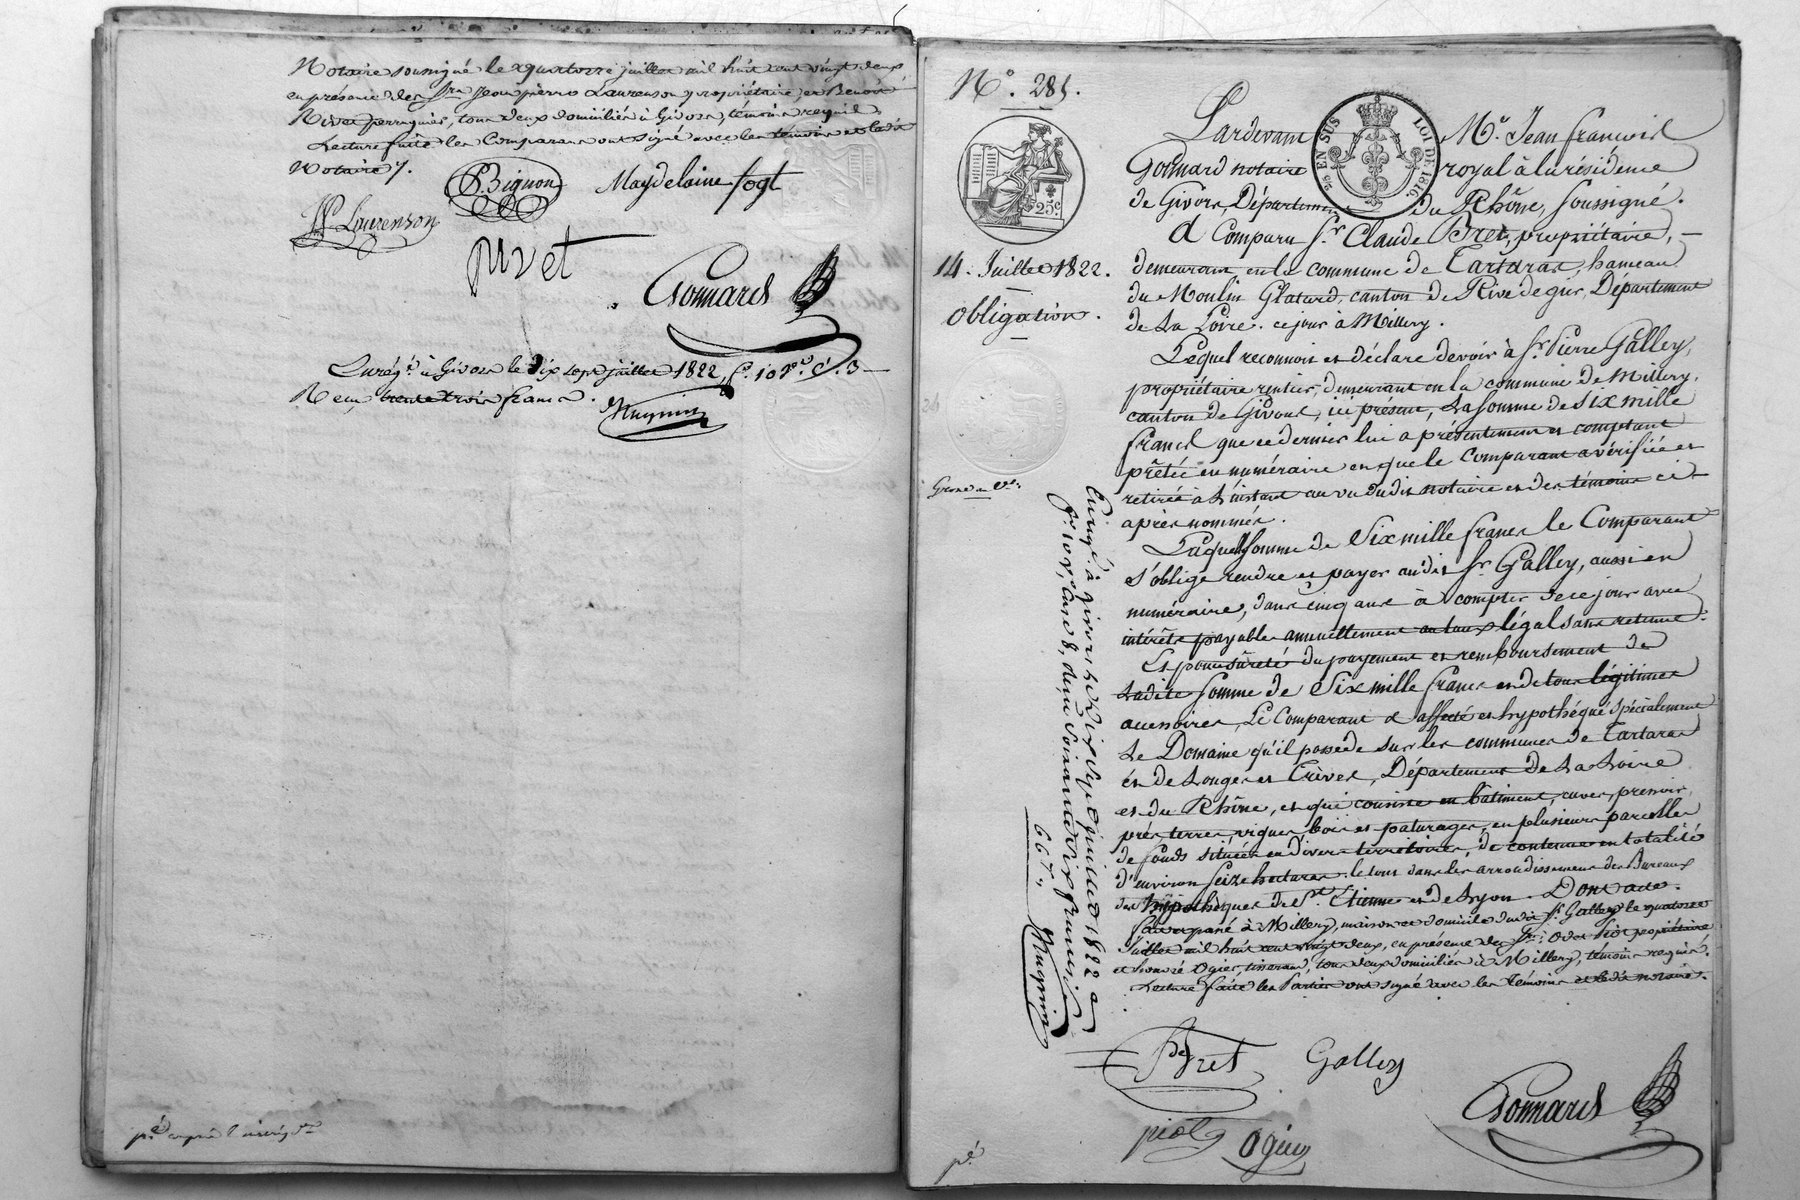 Notaire soussigné le quatorze juillet mil huit cent vingt deux
en présence des Srs Jean pierre Laurenson propriétaire, et Benoit
Nivet perruquier, tous deux domiciliés à Givors, témoins requis
Lecture faite les Comparans ont signé avec les témoins et ledit
Notaire.
P. Bignon
Magdelaine fogt
JP Laurenson
Nivet
Gonnard
Enrég.é à Givors le dix sept juillet 1822, f.o 10 v.o C.e 3
Reçu trente trois francs.
N.o 285.
25 EN SUS LOI DE 1816
25.c
14. Juillet 1822.
Obligation.
Pardevant M.e Jean françois
Gonnard notaire royal à la résidence
de Givors, Département du Rhône, soussigné.
A Comparu S.r Claude Bret, propriétaire,
demeurant en la commune de Tartaras, hameau
du Moulin Glatard, canton de Rive de gier, Département
de La Loire. ce jour à Millery.
Lequel reconnoit et déclare devoir à S.r Pierre Galley,
propriétaire rentier, demeurant en la commune de Millery,
canton de Givors, ici présent, La somme de Six mille
francs que ce dernier lui a présentement et comptant
prêtée en numéraire et que le Comparant a vérifiée et
retirée à L'instant au vu dudit notaire et des témoins ci-
après nommés.
Laquelle somme de Six mille francs le Comparant
s'oblige rendre et payer audit S.r Galley, aussi en
numéraire, dans cinq ans à compter de ce jour avec
intérêts payables annuellement au taux légal sans retenue.
Et pour sûreté du payement et remboursement de
Ladite somme de Six mille francs et de tous légitimes
accessoires, Le Comparant a affecté et hypothéqué spécialement
Le Domaine qu'il possède sur les communes de Tartaras
et de Longes et Trèves, Département de La Loire
et du Rhône, et qui consiste en bâtiment, cuves, pressoir,
prés, terres, vignes, bois et paturages, en plusieurs parcelles
de fonds situées en divers territoires, de contenue en totalité
d'environ seize hectares. le tout dans les arrondissemens des Bureaux
des hypothèques de S.t Etienne et de Lyon. Dont acte.
fait et passé à Millery, maison et domicile dudit S.r Galley le quatorze
Juillet mil huit cent vingt deux, en présence des Srs piot propriétaire
et honoré Ogier, tisserand, tous deux domiciliés à Millery, témoins requis.
Lecture faite les Parties ont signé avec les témoins et ledit notaire.
Enreg.é à givors le dix sept juillet 1822
Bret
Galley
Gonnard
piot
Ogier